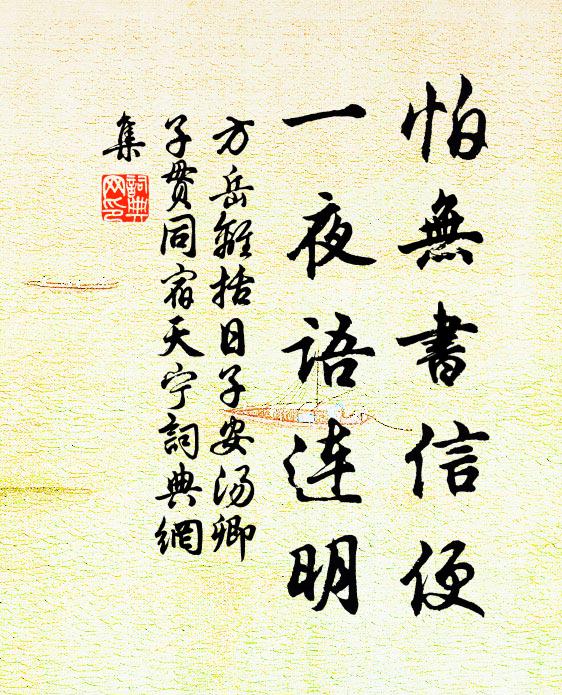 怕無書信便
一夜語連明
方岳離括日子安湯卿
子貫同宿天宁詞典網
集
詞典
网印